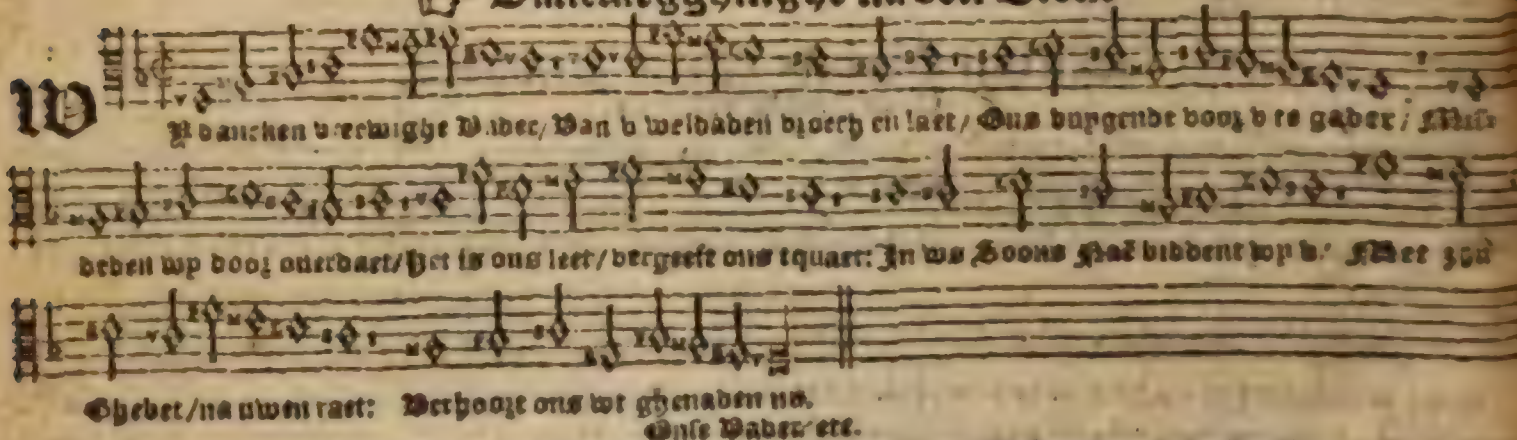 WY dancken v eewighe Vader/ Van v weldaden vroech en laet/ Ons buygende voor v te gader; Misse
deden wy door ouerdaet/ Het is ons leet/ vergeeft ons tquaet: In uws Soons Naē biddent wy v: Met zijn
Ghebet/ na uwen raet: Verhoore ons wt ghenaden nu.
Onse Vader etc.